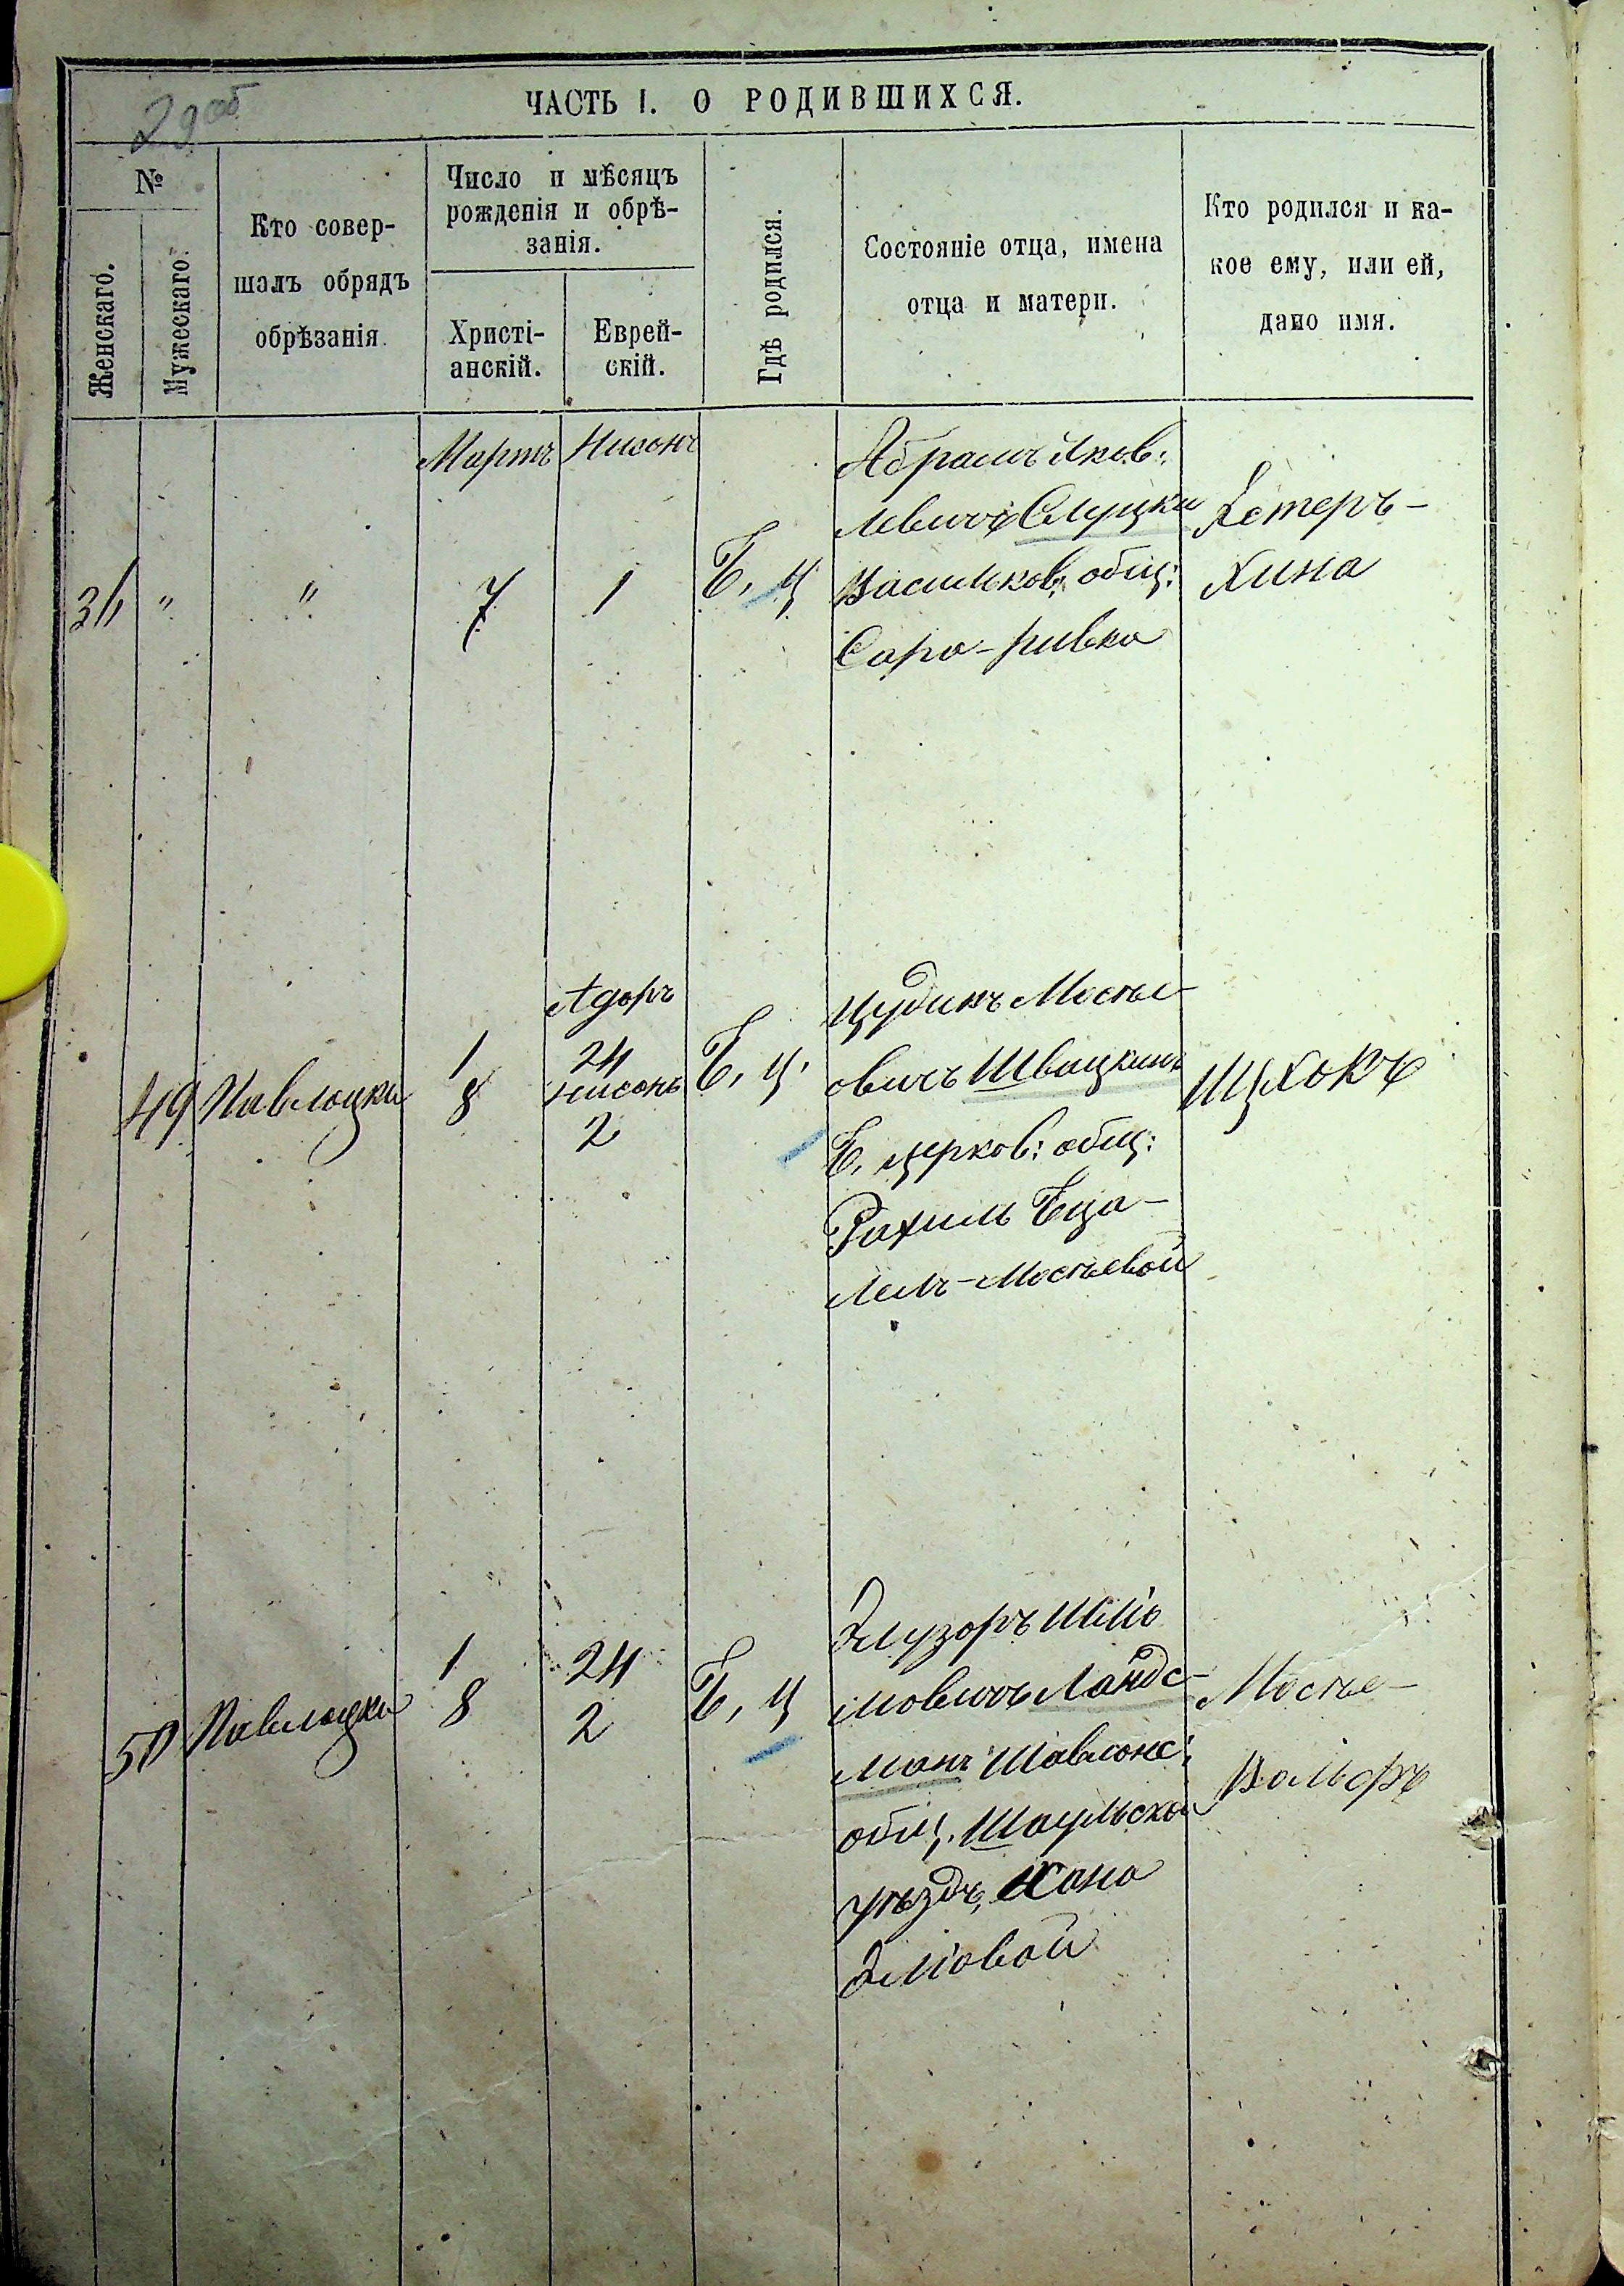 29 об
ЧАСТЬ I. О РОДИВШИХСЯ.
№
Женскаго.
Мужескаго.
Кто совер-
шалъ обрядъ
обрѣзанія.
Число и мѣсяцъ
рожденія и обрѣ-
занія.
Христі-
анскій.
Еврей-
скій.
Гдѣ родился.
Состояніе отца, имена
отца и матери.
Кто родился и ка-
кое ему, или ей,
дано имя.
Мартъ
Нисонъ
31
"
"
7
1
Б, ц
Абрамъ Яков:
левичъ Слуцки
Васильков: общ:
Сора-Ривка
Естеръ-
Хина
49
Павлоцки
1
8
Адоръ
24
Нисонъ
2
Б, ц.
Цудикъ Мовше-
овичъ Швацкинъ
Б, церков: общ:
Рахиль Беца-
лелъ-Мовшевой
Ицхокъ
50
Павлоцки
1
8
24
2
Б, ц
Элузоръ Шлiо
мовичъ Ландс-
манъ Шавлянс:
общ. Шаульска
уѣздъ, Хана
Эліовой
Мовше-
Вольфъ